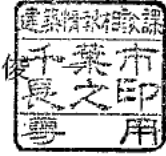 建築情報相談課
千葉市
長之印
専用
俊